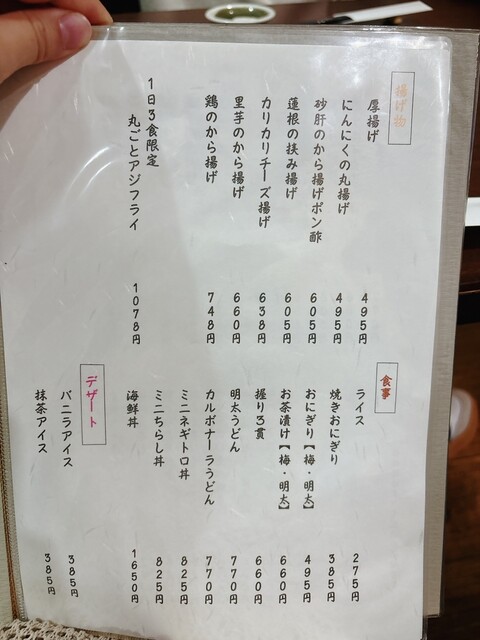 揚げ物
厚揚げ 495円
にんにくの丸揚げ 495円
砂肝のから揚げポン酢 605円
蓮根の挟み揚げ 605円
カリカリチーズ揚げ 638円
里芋のから揚げ 660円
鶏のから揚げ 748円
1日3食限定
丸ごとアジフライ 1078円
食事
ライス 275円
焼きおにぎり 385円
おにぎり【梅・明太】 495円
お茶漬け【梅・明太】 660円
握り3貫 660円
明太うどん 770円
カルボナーラうどん 770円
ミニネギトロ丼 825円
ミニちらし丼 825円
海鮮丼 1650円
デザート
バニラアイス 385円
抹茶アイス 385円